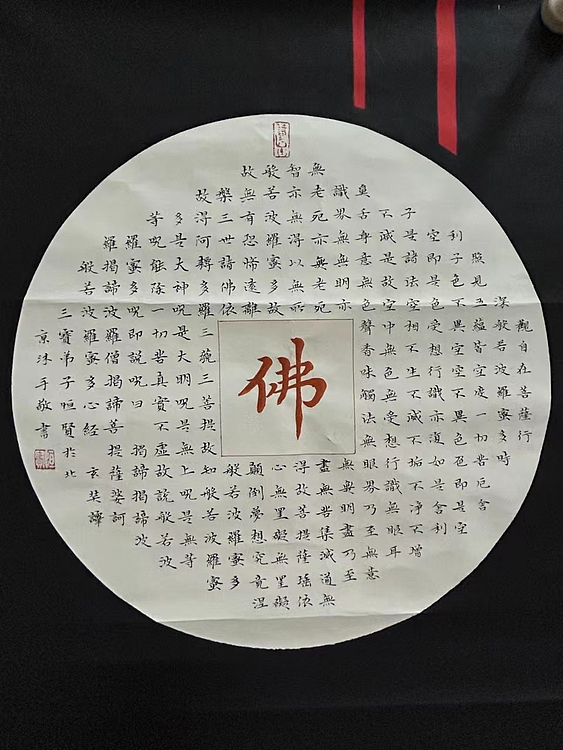 觀自在菩薩行
深般若波羅蜜多時
照見五蘊皆空度一切苦厄舍
利子色不異空空不異色色即是空
空即是色受想行識亦復如是舍利
子是諸法空相不生不滅不垢不淨不增
不減是故空中無色無受想行識無眼耳
鼻舌身意無色聲香味觸法無眼界乃至無意
識界無無明亦無無明盡乃至
無老死亦無老死盡無苦集滅道無
智亦無得以無所得故菩提薩埵依
般若波羅蜜多故心無罣礙無罣礙
故無有恐怖遠離顛倒夢想究竟涅
槃三世諸佛依般若波羅蜜多
故得阿耨多羅三藐三菩提故知般若波羅蜜
多是大神呪是大明呪是無上呪是無等
等呪能除一切苦真實不虛故說般若波
羅蜜多呪即說呪曰揭諦揭諦波
羅揭諦波羅僧揭諦菩提薩婆訶
般若波羅蜜多心經玄奘譯
三寶弟子恒賢於北
京沐手敬書
佛